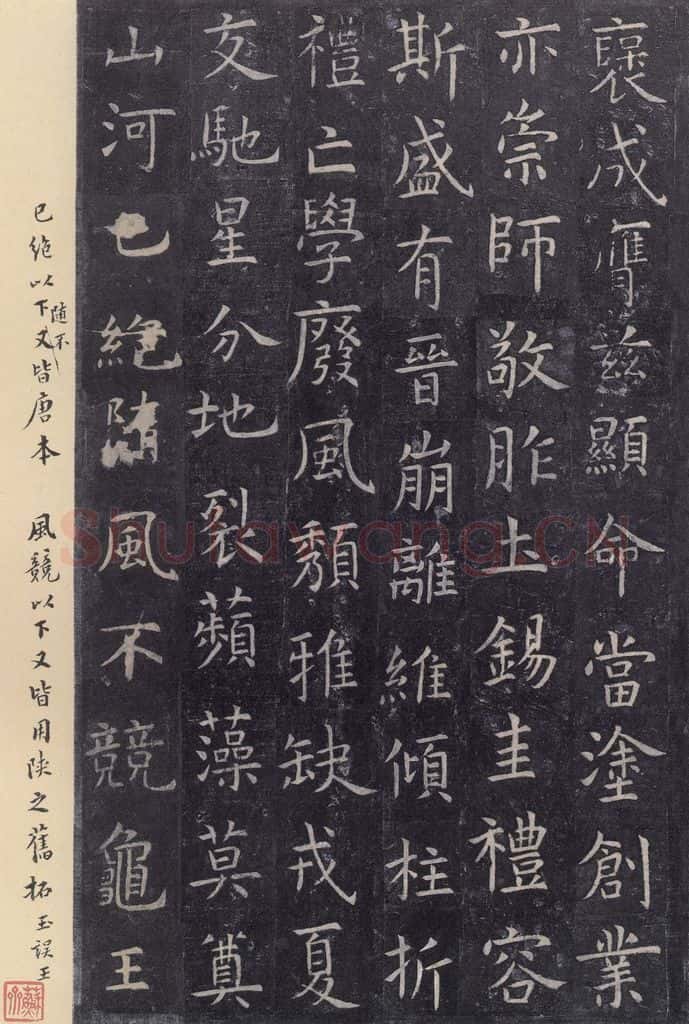 褒成膺兹顯命當塗創業
亦崇師敬胙土錫圭禮容
斯盛有晉崩離維傾柱折
禮亡學廢風頹雅缺戎夏
交馳星分地裂蘋藻莫奠
山河已絕隨風不競龜王
已絕以下又皆唐本 風競以下又皆用陝之舊拓 玉誤王
隨不
Shufawang.CN